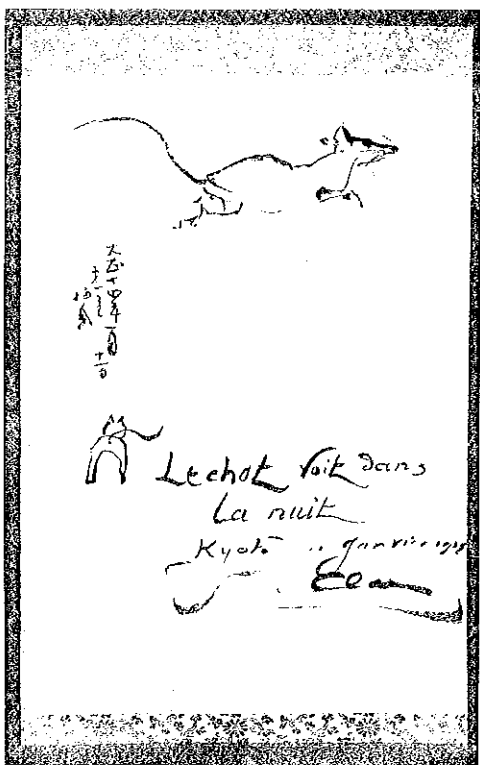 大正十四年一月
十一日
Le chat Voit dans
La nuit
Kyoto .. Janvier 1925